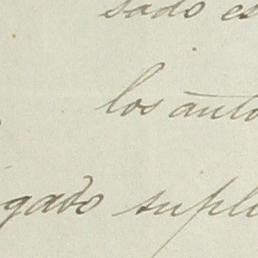 sado es
los auto
gado supl